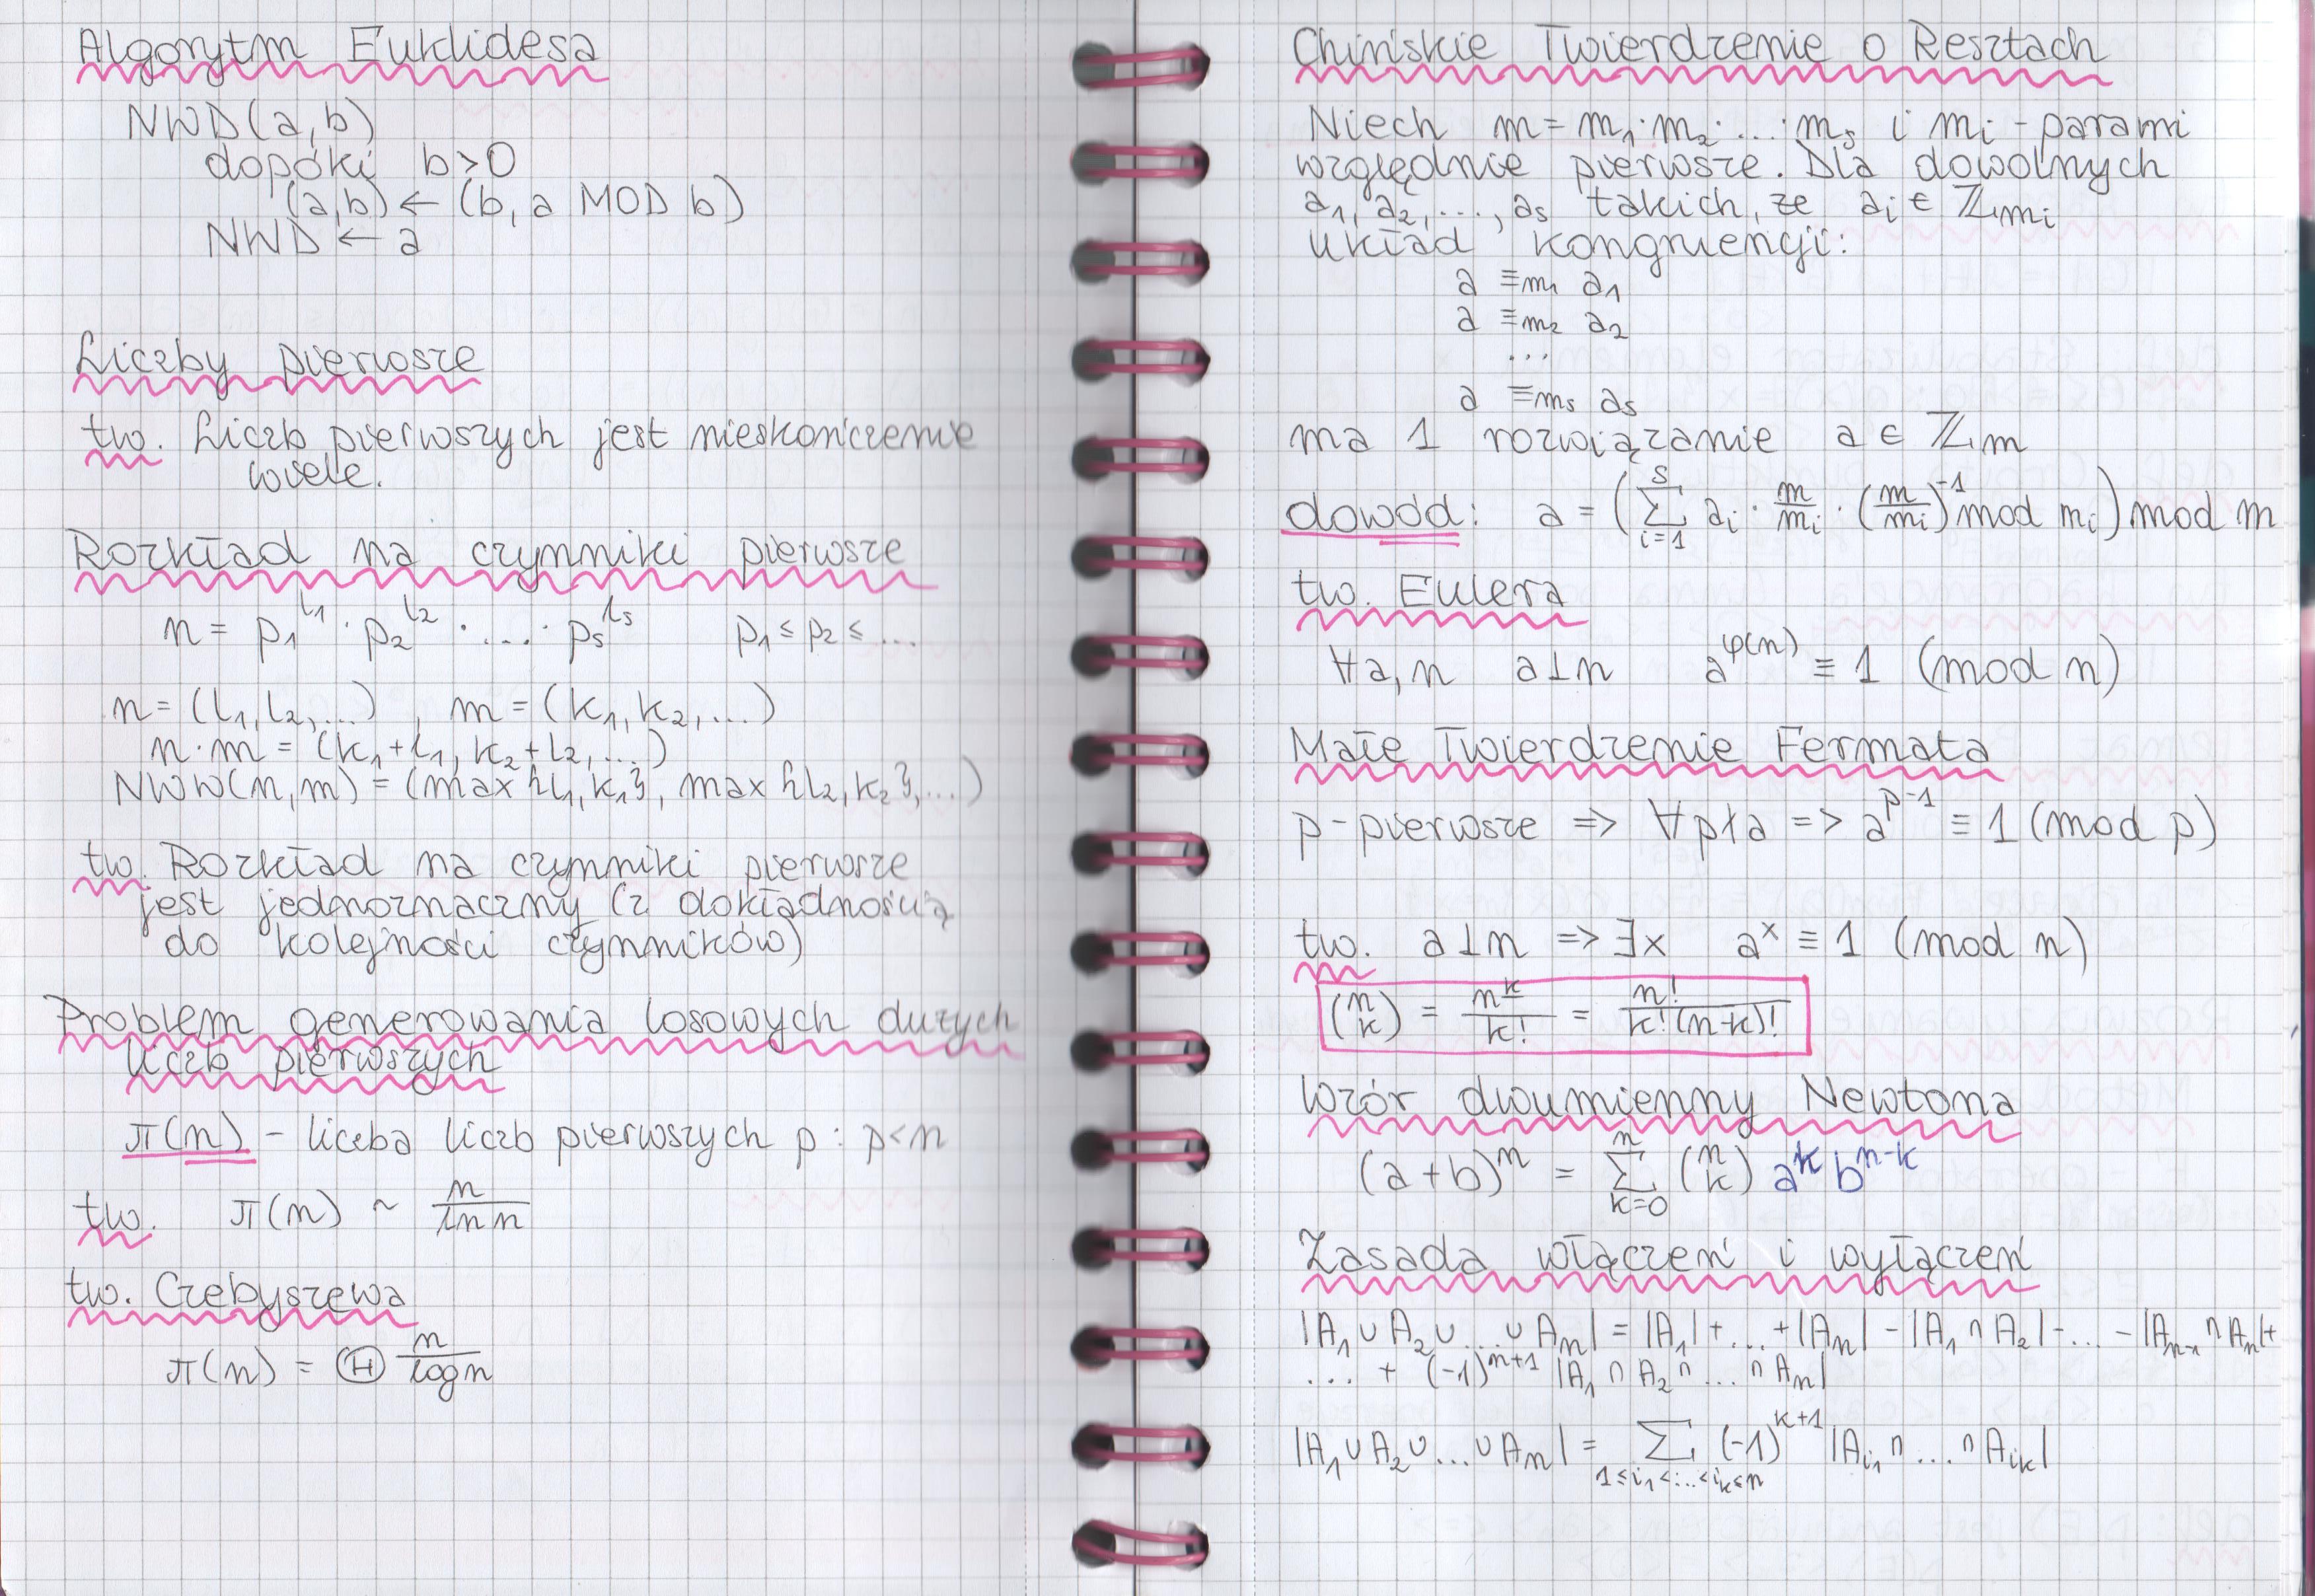 Algorytm Euklidesa
NWD(a,b)
dopóki b>0
(a,b) ← (b, a MOD b)
NWD ← a
Liczby pierwsze
tw. Liczb pierwszych jest nieskończenie
wiele.
Rozkład na czynniki pierwsze
n = p₁^l₁ · p₂^l₂ · ... · pₛ^lₛ p₁ ≤ p₂ ≤ ...
n = (l₁, l₂, ...) , m = (k₁, k₂, ...)
n·m = (k₁+l₁, k₂+l₂, ...)
NWW(n,m) = (max{l₁,k₁}, max{l₂,k₂}, ...)
tw. Rozkład na czynniki pierwsze
jest jednoznaczny (z dokładnością
do kolejności czynników)
Problem generowania losowych dużych
liczb pierwszych
π(n) - liczba liczb pierwszych p : p<n
tw. π(n) ~ n/ln n
tw. Czebyszewa
π(n) = Θ n/log n
Chińskie Twierdzenie o Resztach
Niech m = m₁·m₂·...·mₛ i mᵢ - parami
względnie pierwsze. Dla dowolnych
a₁, a₂, ..., aₛ takich, że aᵢ ∈ ℤmᵢ
układ kongruencji:
a ≡m₁ a₁
a ≡m₂ a₂
...
a ≡mₛ aₛ
ma 1 rozwiązanie a ∈ ℤm
dowód: a = (∑_{i=1}^{s} aᵢ · m/mᵢ · (m/mᵢ)⁻¹ mod mᵢ) mod m
tw. Eulera
∀a,n a⊥n a^φ(n) ≡ 1 (mod n)
Małe Twierdzenie Fermata
p - pierwsze => ∀p∤a => a^(p-1) ≡ 1 (mod p)
tw. a⊥n => ∃x aˣ ≡ 1 (mod n)
(n k) = n^k̲/k! = n!/k!(n-k)!
Wzór dwumienny Newtona
(a+b)ⁿ = ∑_{k=0}^{n} (n k) a^k b^(n-k)
Zasada włączeń i wyłączeń
|A₁ ∪ A₂ ∪ ... ∪ Aₙ| = |A₁| + ... + |Aₙ| - |A₁ ∩ A₂| - ... - |Aₙ₋₁ ∩ Aₙ| +
... + (-1)ⁿ⁺¹ |A₁ ∩ A₂ ∩ ... ∩ Aₙ|
|A₁ ∪ A₂ ∪ ... ∪ Aₙ| = ∑_{1≤i₁<...<iₖ≤n} (-1)^(k+1) |Aᵢ₁ ∩ ... ∩ Aᵢₖ|